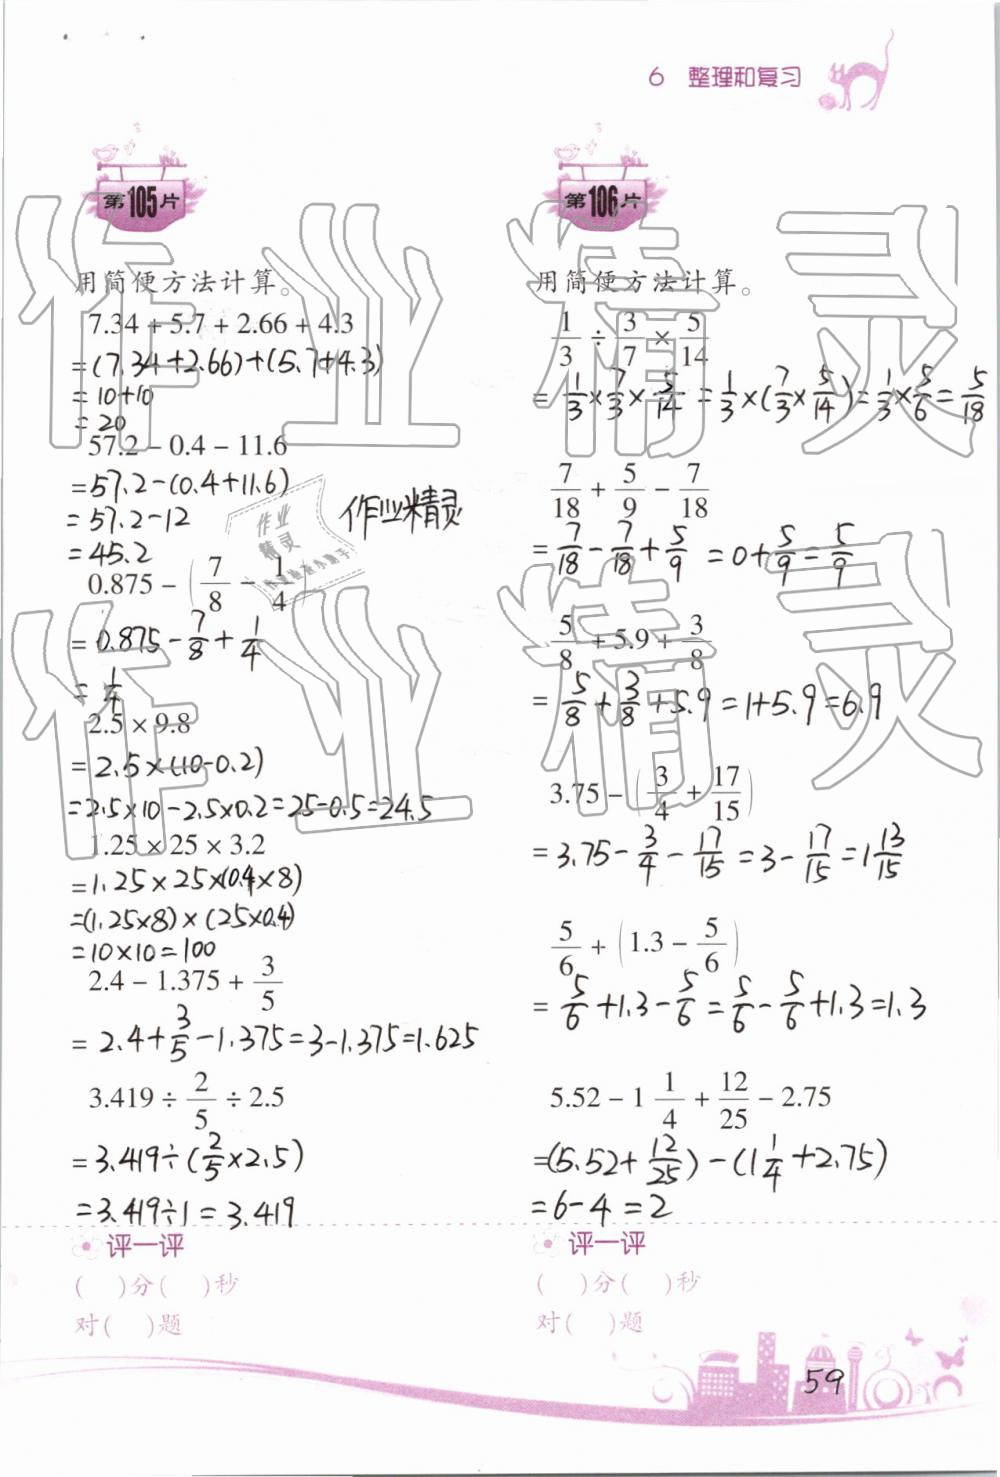 6 整理和复习
第105片
用简便方法计算。
7.34 + 5.7 + 2.66 + 4.3
= (7.34+2.66)+(5.7+4.3)
= 10+10
= 20
57.2 − 0.4 − 11.6
= 57.2−(0.4+11.6)
= 57.2−12
= 45.2
0.875 − (7/8 − 1/4)
= 0.875 − 7/8 + 1/4
= 1/4
2.5 × 9.8
= 2.5×(10−0.2)
= 2.5×10−2.5×0.2=25−0.5=24.5
1.25 × 25 × 3.2
= 1.25×25×(0.4×8)
= (1.25×8)×(25×0.4)
= 10×10=100
2.4 − 1.375 + 3/5
= 2.4+3/5−1.375=3−1.375=1.625
3.419 ÷ 2/5 ÷ 2.5
= 3.419÷(2/5×2.5)
= 3.419÷1=3.419
评一评
( )分( )秒
对( )题
作业精灵
作业
精灵
第106片
用简便方法计算。
1/3 ÷ 3/7 × 5/14
= 1/3×7/3×5/14=1/3×(7/3×5/14)=1/3×5/6=5/18
7/18 + 5/9 − 7/18
= 7/18−7/18+5/9=0+5/9=5/9
5/8 + 5.9 + 3/8
= 5/8+3/8+5.9=1+5.9=6.9
3.75 − (3/4 + 17/15)
= 3.75−3/4−17/15=3−17/15=1 13/15
5/6 + (1.3 − 5/6)
= 5/6+1.3−5/6=5/6−5/6+1.3=1.3
5.52 − 1 1/4 + 12/25 − 2.75
=(5.52+12/25)−(1 1/4+2.75)
=6−4=2
评一评
( )分( )秒
对( )题
59
作业精灵
作业精灵